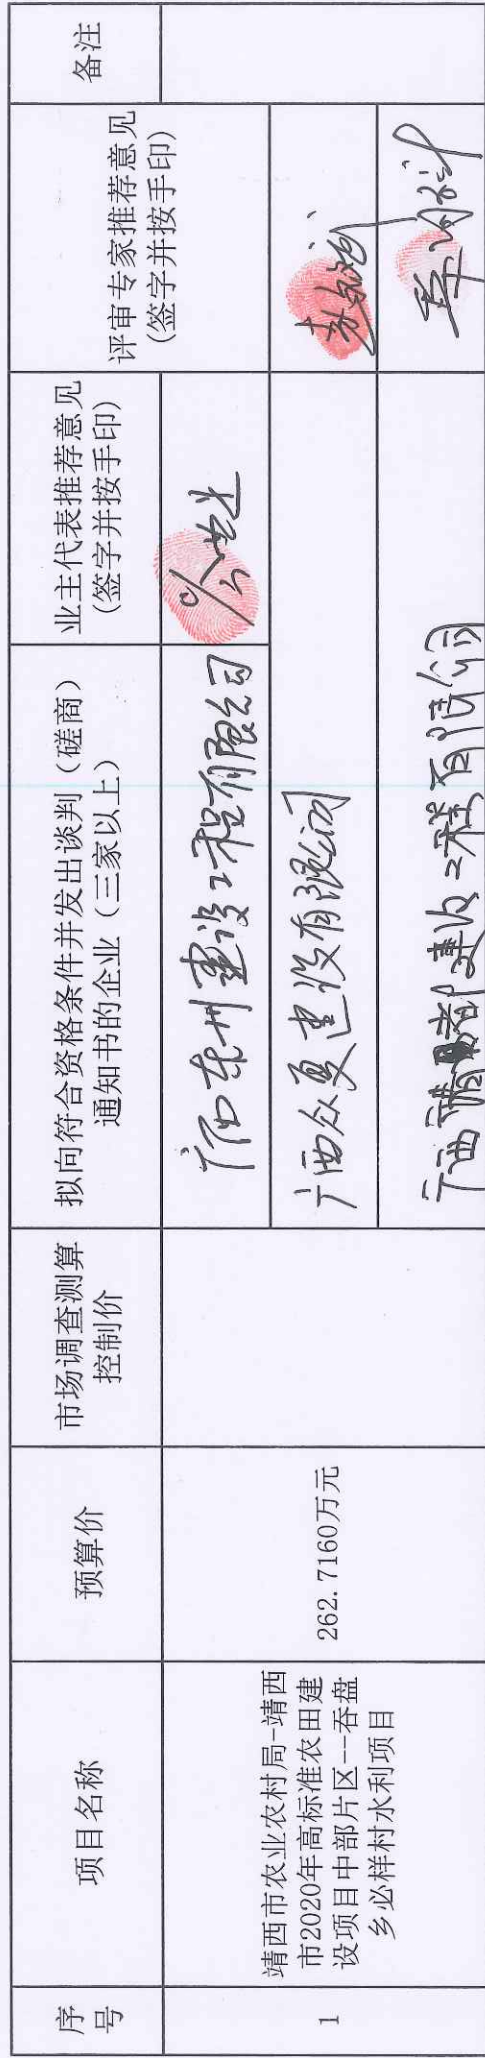 序
号
项目名称
预算价
市场调查测算
控制价
拟向符合资格条件并发出谈判（磋商）
通知书的企业（三家以上）
业主代表推荐意见
(签字并按手印)
评审专家推荐意见
(签字并按手印)
备注
1
靖西市农业农村局-靖西
市2020年高标准农田建
设项目中部片区--吞盘
乡必样村水利项目
262.7160万元
广西东州建设工程有限公司
广西众夏建设有限公司
广西 部建设工程有限公司